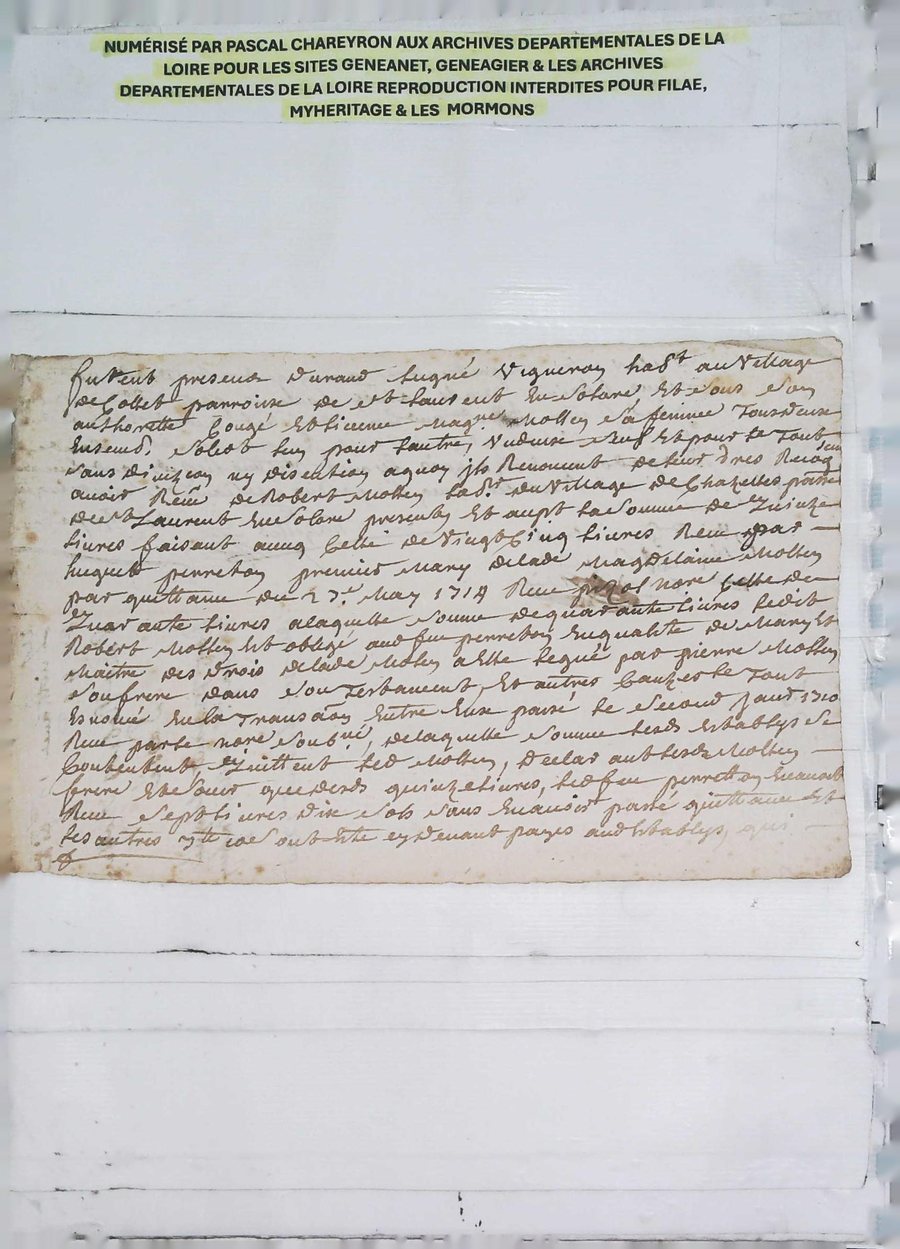 NUMÉRISÉ PAR PASCAL CHAREYRON AUX ARCHIVES DEPARTEMENTALES DE LA
LOIRE POUR LES SITES GENEANET, GENEAGIER & LES ARCHIVES
DEPARTEMENTALES DE LA LOIRE REPRODUCTION INTERDITES POUR FILAE,
MYHERITAGE & LES MORMONS
furent presens Durand Vigneron habt au Village
de Collet parroisse de st Laurent En Solore, Et sous son
authorette Congé Et licence Mollen sa femme Tous deux
Ensemb. solidt lun pour lautre, Et pour le Tout
sans division ny disention aquoy ils Renoncent
avoir Reçu de Robert Mollen habt du Village de Chazelles
de st Laurent En Solore present Et accept la Somme de Quinze
livres faisant avec Celle de Vingt Cinq livres Reçu par
hugues perreton premier Mary delade Magdelaine Mollen
par quittance du 27e May 1718 Reçue notre Celle de
Quarante livres a laquelle somme de quarante livres ledit
Robert Mollen Est obligé audfeu perreton En qualite de Mary Et
Maitre des Drois delade Mollen a Elle legué par pierre Mollen
son frere dans son Testament, Et autres Causes le Tout
Enoncé En la Transaon Entre Eux passé le second
Reçue par le notre soubné, de laquelle somme lesds Establys se
Contentent, Quittent led Mollen, Declarant lesds Mollen
frere Et soeur que desds quinze livres, led feu perretton En avoit
Reçu sept livres dix sols sans En avoir passé quittance Et
les autres ont Esté cy devant payés auds Establys, qui